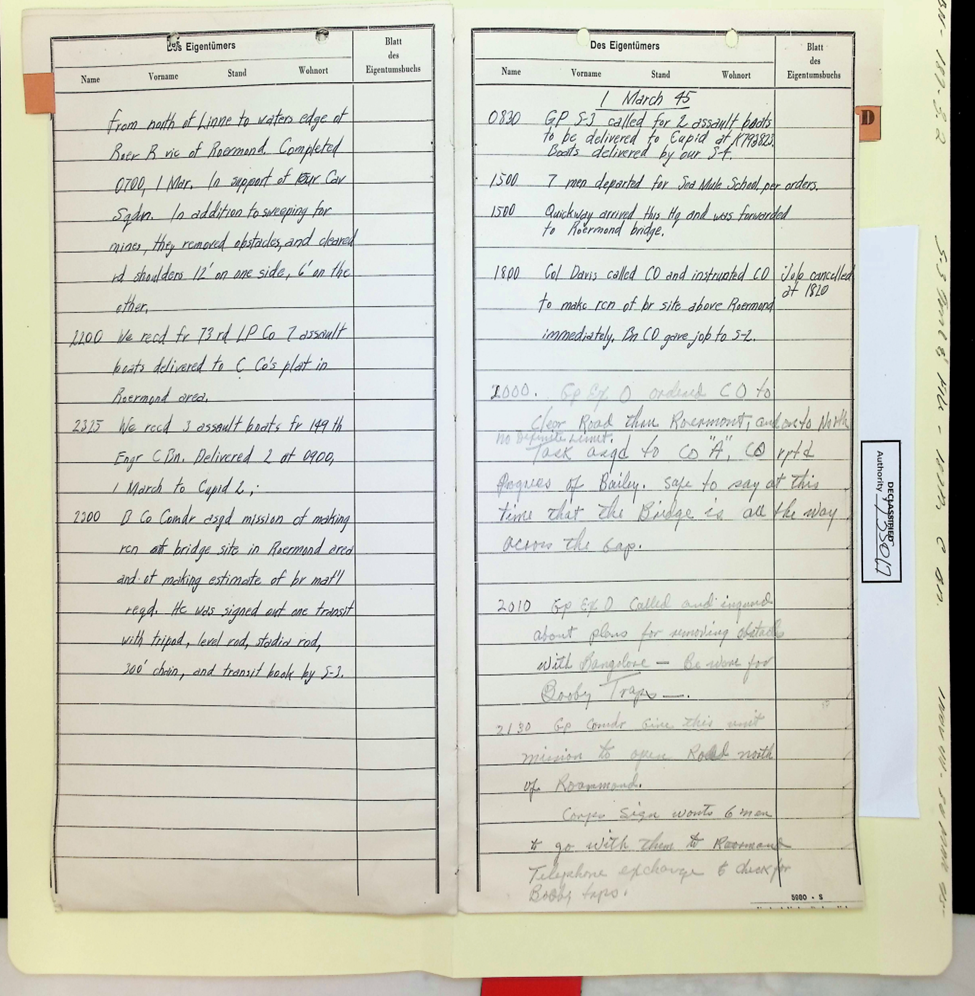 Des Eigentümers
Name Vorname Stand Wohnort
Blatt
des
Eigentumsbuchs
from north of Linne to waters edge of
Roer R vic of Roermond. Completed
0700, 1 Mar. In support of Cav
Sqdn. In addition to sweeping for
mines, they removed obstacles, and cleared
rd shoulders 12' on one side, 6' on the
other.
2200 We recd fr 73rd LP Co 7 assault
boats delivered to C Co's plat in
Roermond area.
2325 We recd 3 assault boats fr 149th
Engr C Bn. Delivered 2 at 0900,
1 March to Cupid 2;
2200 B Co Comdr asgd mission of making
rcn of bridge site in Roermond area
and of making estimate of br mat'l
reqd. He was signed out one transit
with tripod, level rod, stadia rod,
300' chain, and transit book by S-3.
Des Eigentümers
Name Vorname Stand Wohnort
Blatt
des
Eigentumsbuchs
1 March 45
0830 GP S-3 called for 2 assault boats
to be delivered to Cupid at
Boats delivered by our S-4.
1500 7 men departed for Sea Mule School, per orders.
1500 Quickway arrived this Hq and was forwarded
to Roermond bridge.
1800 Col Davis called CO and instructed CO
to make rcn of br site above Roermond
immediately. Bn CO gave job to S-2.
Job cancelled
at 1810
2000. Gp Ex O ordered CO to
Clear Road thru Roermont, and on to North
No Definite Limit.
Task asgd to Co "A", CO rptd
Progress of Bailey. Safe to say at this
time that the Bridge is all the way
across the Gap.
2010 Gp Ex O Called and inquired
about plans for removing obstacle
with Bangalore — Be ware for
Booby Traps —.
2130 Gp Comdr Give this unit
mission to open Road north
of Roermond.
Corps Sign wants 6 men
to go with them to Roermond
Telephone exchange to check for
Booby traps.
5980 - S
D
DECLASSIFIED
Authority